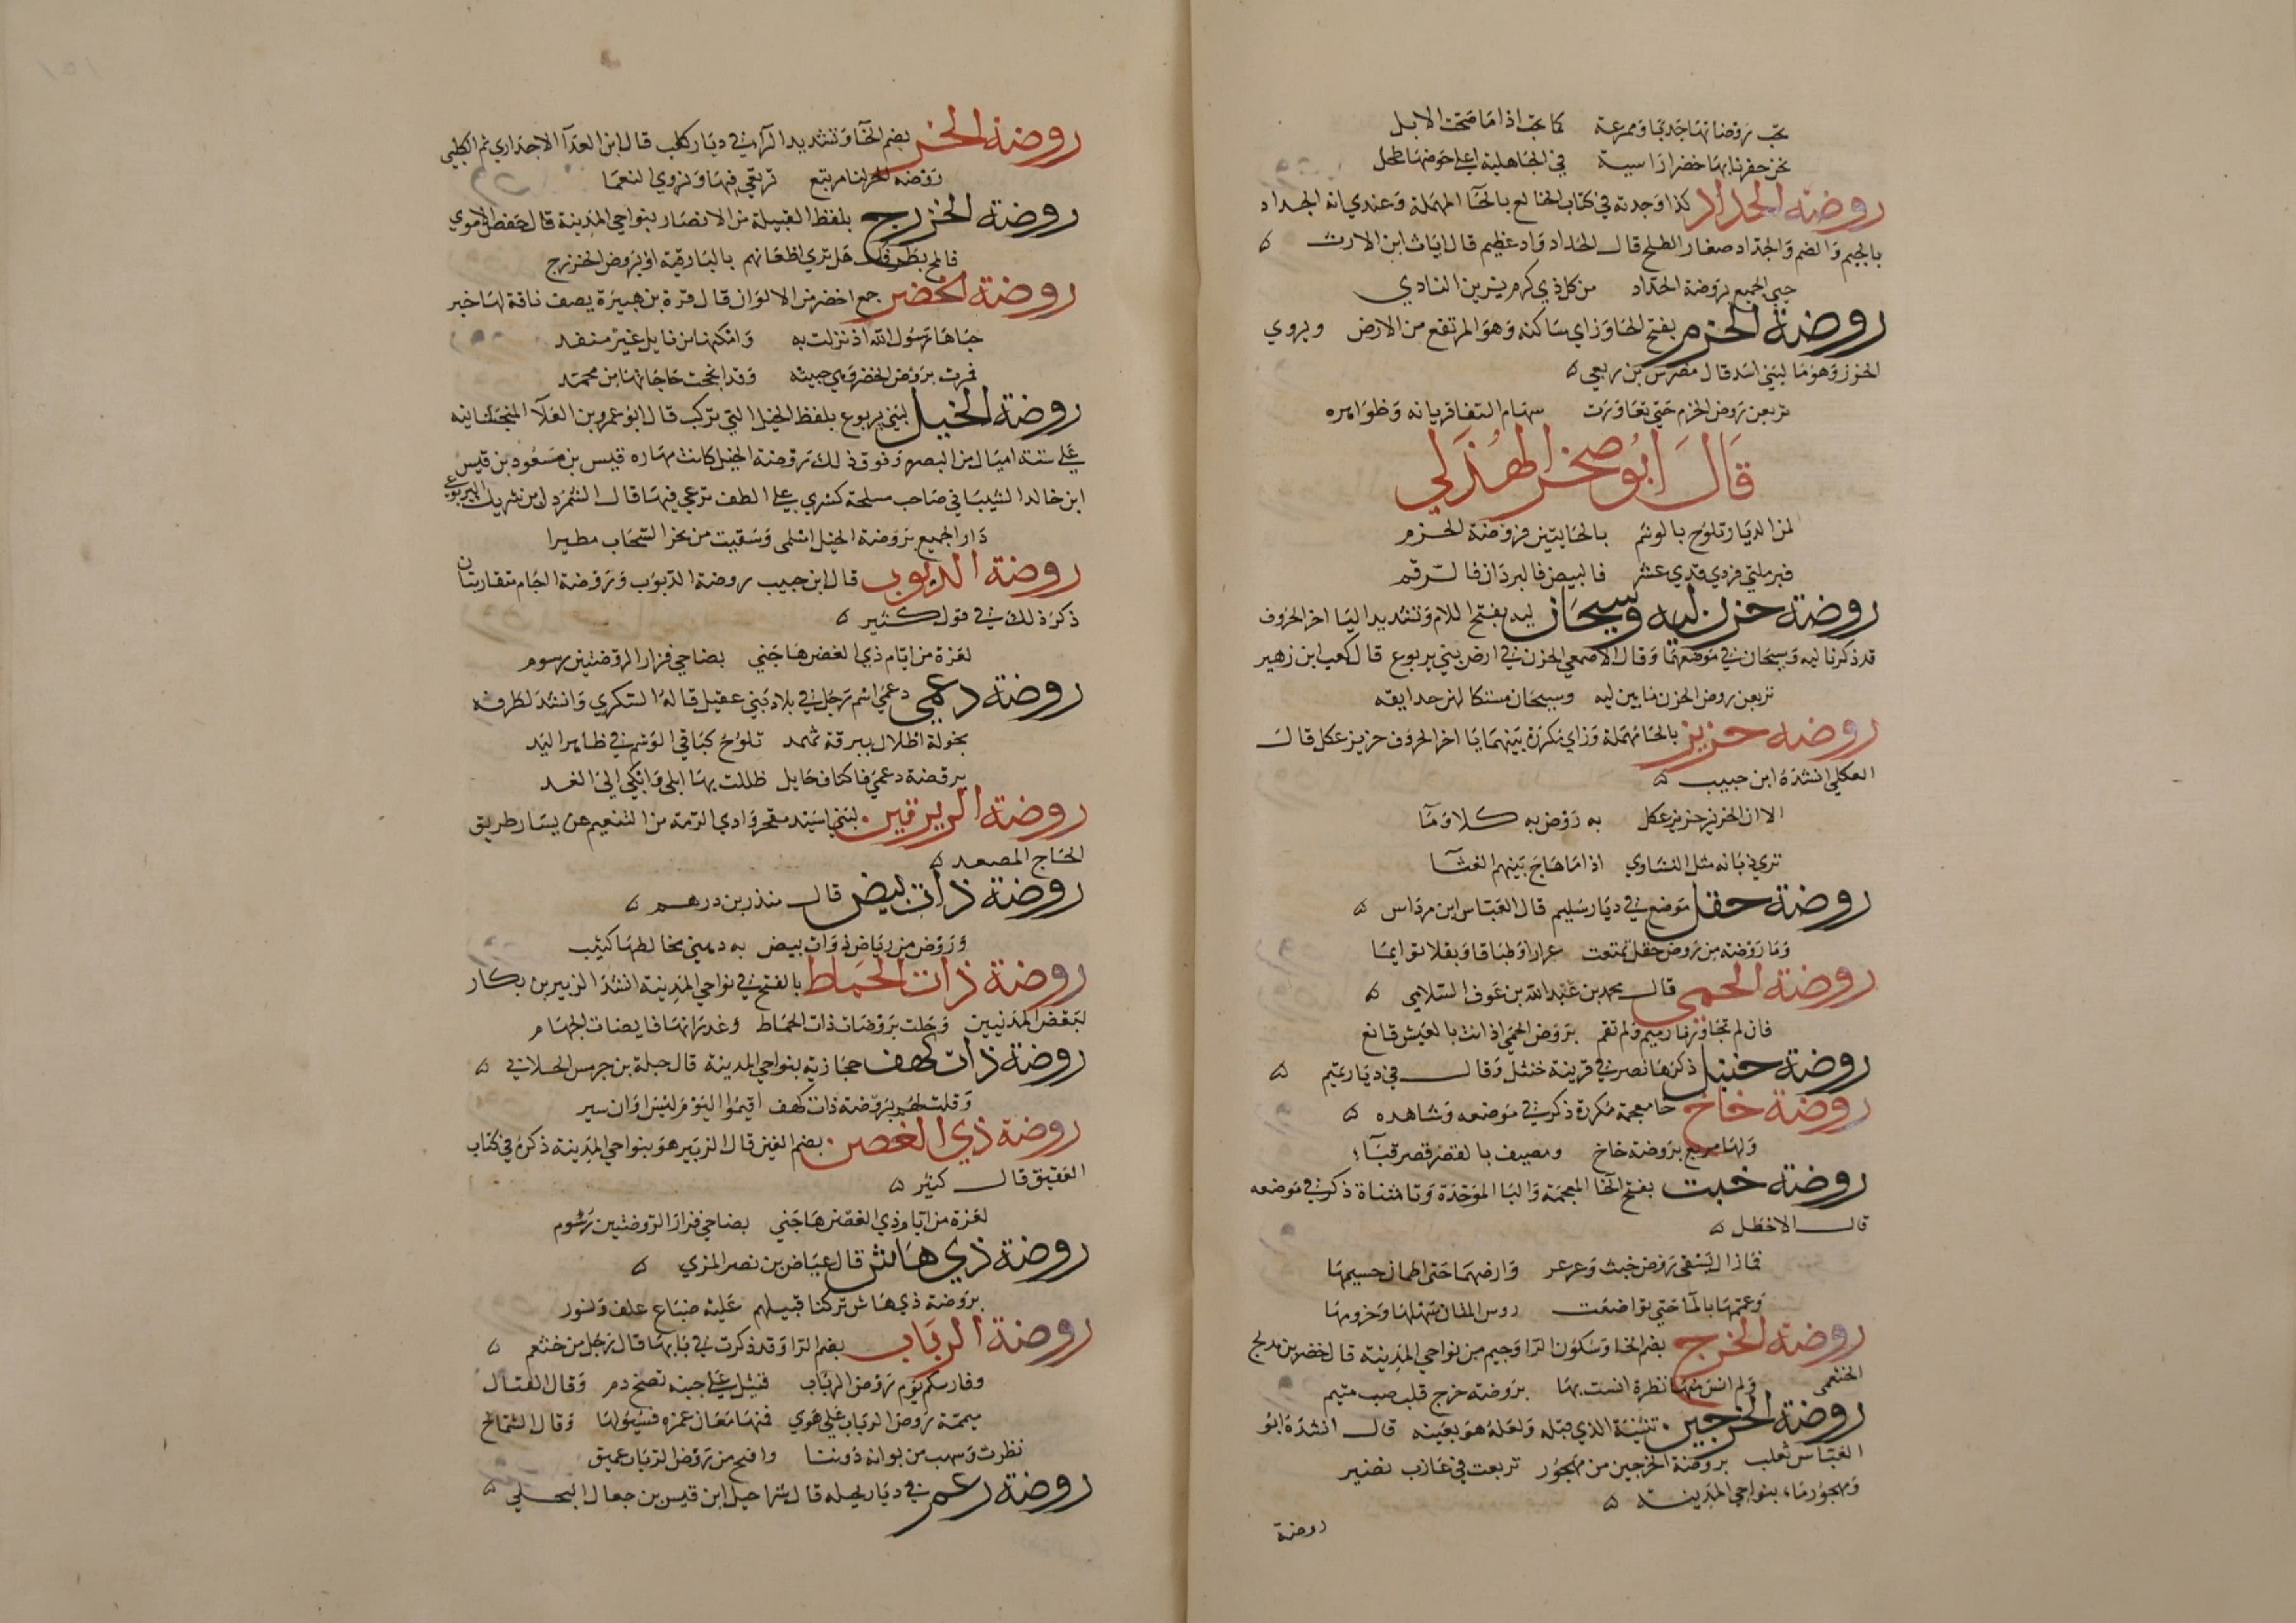 تحب روضاتها جدبا وممرعة كما تحب اذا ما صحت الابل
نحن حفرنا بها خضرا راسية في الجاهلية اعلى حوضها طحل
روضة الحداد كذا وجدته في كتاب الخالع بالحا المهملة وعندي انه الجداد
بالجيم والضم والجداد صغار الطلح قال الحداد واد عظيم قال اياث ابن الارث
حيي الجميع بروضة الحداد من كل ذي كرم يزين النادي
روضة الحزم بفتح الحا وزاي ساكنه وهو المرتفع من الارض ويروي
الخزز وهو ما لبني اسد قال مضرس بن ربعي
تربعن روض الحزم حتى تعاورت سهام السفا قريانه وظواهره
قال ابو صخر الهذلي
لمن الديار تلوح بالوشم بالجابتين فروضة الحزم
فبرملتي فردي فذي عشر فالبيض فالبردان فالرقم
روضة حزن ليه وسيحان ليه بفتح اللام وتشديد اليا اخر الحروف
قد ذكرنا ليه وسيحان في موضعهما وقال الاصمعي الحزن في ارض بني يربوع قال كعب ابن زهير
تربعن روض الحزن ما بين ليه وسيحان مستكا لهن حدايقه
روضه حزيز بالحا مهملة وزاي مكررة بينهما يا اخر الحروف حزيز عكل قال
العكلي انشده ابن حبيب
الا ان الحزيز حزيز عكل به روض به كلا وما
تري ذبانه مثل النشاوي اذا ما هاج بينهم الغثا
روضة حقل موضع في ديار سليم قال العباس ابن مرداس
وما روضة من روض حقل تمتعت عرارا وطباقا وبقلا توايما
روضة الحمى قال محمد بن عبد الله بن عوف السلامي
فان لم تجاورنا رميم ولم تقم بروض الحمى اذ انت بالعيش قانع
روضة حنبل ذكرها نصر في قرينة خنثل وقال في ديار تميم
روضة خاخ خا معجمة مكررة ذكر في موضعه وشاهده
ولها مربع بروضة خاخ ومصيف بالقصر قصر قبا
روضة خبت بفتح الخا المعجمة والبا الموحدة وتا مثناة ذكر في موضعه
قال الاخطل
فما زال يسقي روض خبت وعرعر وارضهما حتى اطمان جسيمها
وعمهما بالما حتى تواضعت روس المتان سهلها وحزومها
روضة الخرج بضم الخا وسكون الرا وجيم من نواحي المدينة قال خضر بن مدلج
الخثعمي ولم انس منها نظرة انست بها بروضة خرج قلب صب متيم
روضة الخرجين تثنية الذي قبله ولعله هو بعينه قال انشده ابو
العباس ثعلب بروضة الخرجين من مهجور تربعت في عازب نضير
ومهجور ما، بنواحي المدينة
روضة
روضة الخر بضم الخا وتشديد الرا في ديار كلب قال ابن العدا الاجداري ثم الكلبي
روضه الخر لنا مرتبع نرتعي فيها ونروي النعما
روضة الخزرج بلفظ القبيلة من الانصار بنواحي المدينة قال حفص الاموي
فالمح بطرفك هل تري اظعانهم بالبارقية او بروض الخزرج
روضة الخضر جمع اخضر من الالوان قال قرة بن هبيرة يصف ناقة لها خير
حباها رسول الله اذ نزلت به وامكنها من نايل غير منفد
فمرت بروض الخضر وهي حثيثه وقد انجحت حاجاتها من محمد
روضة الخيل لبني يربوع بلفظ الخيل التي تركب قال ابو عمرو بن العلا المنجشانيه
على ستة اميال من البصره وفوق ذلك روضة الخيل كانت مهاره قيس بن مسعود بن قيس
ابن خالد الشيباني صاحب مسلحة كسري على الطف ترعى فيها قال الشمردل بن شريك اليربوعي
دار الجميع بروضة الخيل اسلمى وسقيت من بحر السحاب مطيرا
روضة الدبوب قال ابن حبيب روضة الدبوب وروضة الجام متقاربتان
ذكر ذلك في قول كثير
لعزة من ايام ذي الغصن هاجني بضاحي قرار الروضتين رسوم
روضة دعمي دعمي اسم رجل في بلاد بني عقيل قاله السكري وانشد لطرفه
بخولة اطلال ببرقة ثهمد تلوح كباقي الوشم في ظاهر اليد
بروضة دعمي فاكناف حايل ظللت بها ابكى وابكي الى الغد
روضة الريرقين لبني اسيد مفجر وادي الرمة من التنعيم عن يسار طريق
الحاج المصعد
روضة ذات بيض قال منذر بن درهم
وروض من رياض ذوات بيض به دهني مخالطها كثيب
روضة ذات الحماط بالفتح في نواحي المدينة انشد الزبير بن بكار
لبعض المدنيين وحلت بروضات ذات الحماط وغدرانها فايضات الجمام
روضة ذات كهف حجازية بنواحي المدينة قال جبلة بن جريس الحلاني
وقلت لهم بروضة ذات كهف اقيموا اليوم ليس اوان سير
روضة ذي الغصن بضم الغين قال الزبير هو بنواحي المدينة ذكره في كتاب
العقيق قال كثير
لعزة من ايام ذي الغصن هاجني بضاحي قرار الروضتين رسوم
روضة ذي هاش قال عياض بن نصر المزي
بروضة ذي هاش تركنا قتيلهم عليه ضباع عكف ونسور
روضة الرباب بضم الرا وقد ذكرت في بابها قال رجل من خثعم
وفارسكم يوم روض الرباب قتيل على جنبه نضح دم وقال القتال
ميممة روض الرباب على هوي فمنها مغان غمره فسيولها وقال الشماخ
نظرت وسهب من بوانه دوننا وافيح من روض الرباب عميق
روضة رعم في ديار بجيله قال شراحيل ابن قيس بن جعال البجلي